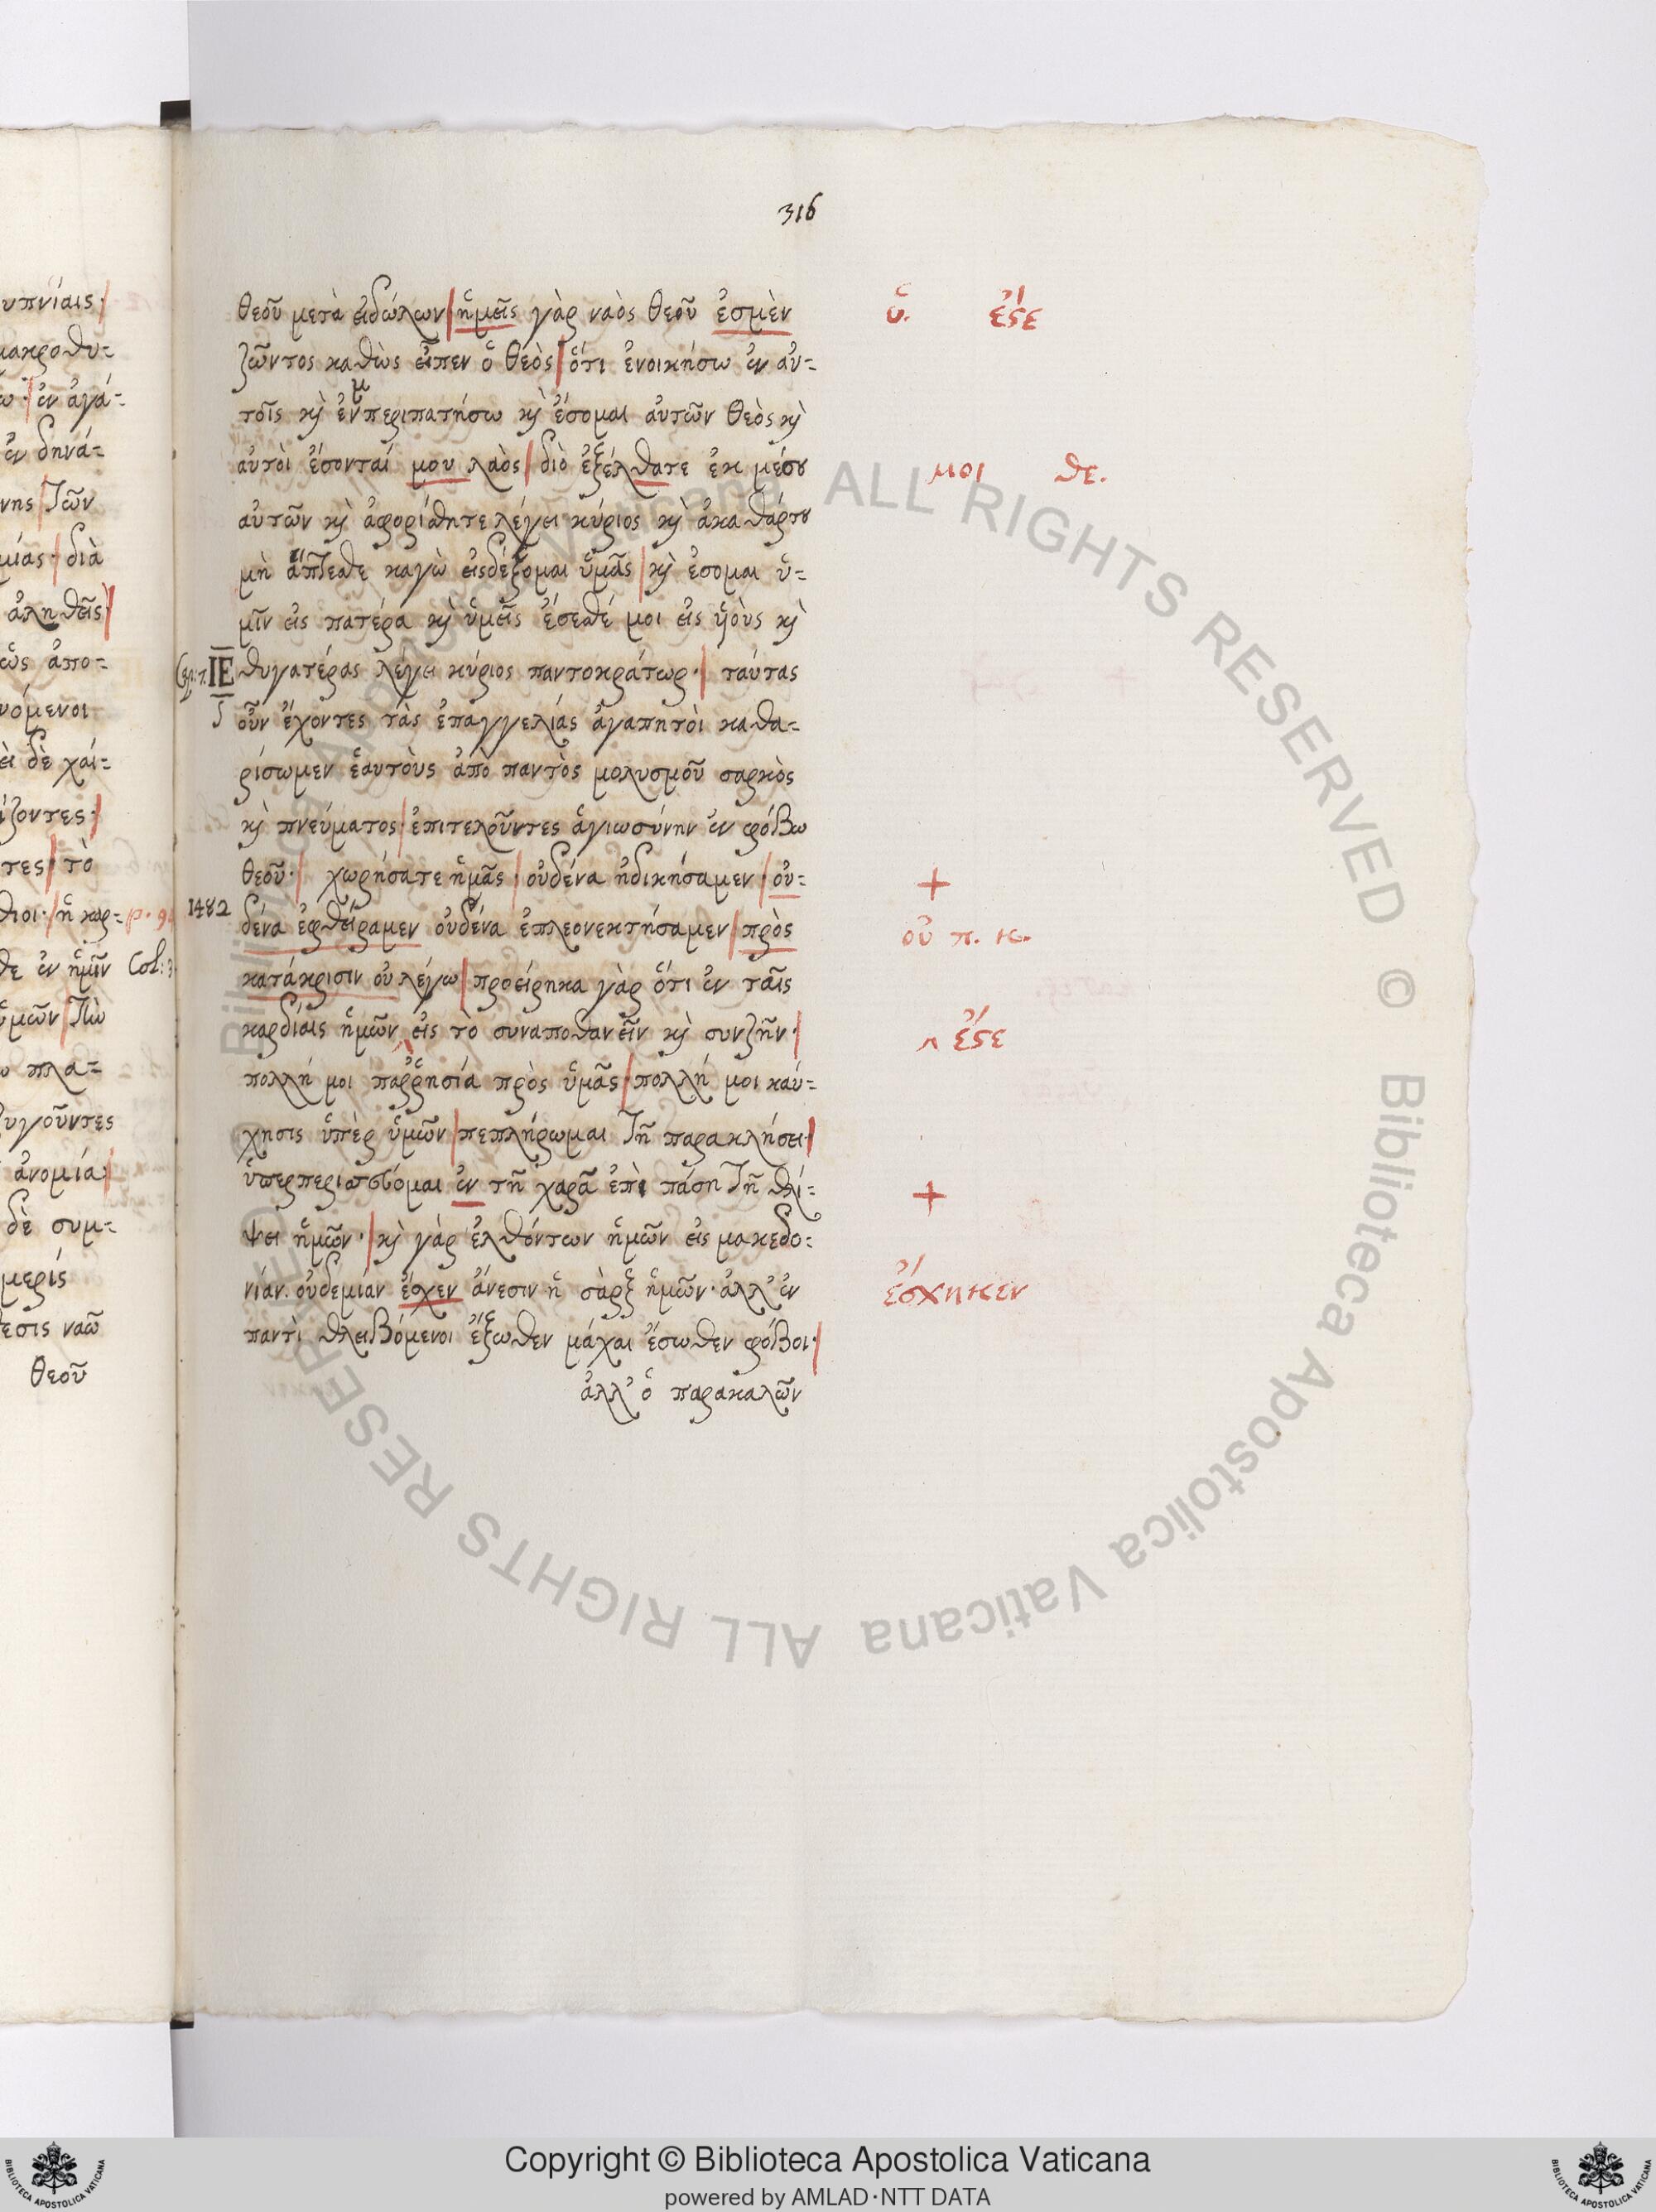 316
υπνίαις·
μακροθυ=
ω· ἐν ἀγά=
ἐν δηνά=
νης τῶν
μίας· διὰ
ἀληθεῖς
ὡς ἀπο=
νόμενοι
εὶ δὲ χαί=
ίζοντες·
τες τὸ
θιοι· ἡ καρ=
θε ἐν ἡμῖν Col: 3
ὑμῶν τὴν
ω πλα=
ζυγοῦντες
ἀνομία
δὲ συμ=
μερίς
εσις ναῶ
θεοῦ
θεοῦ μετὰ εἰδώλων ἡμεῖς γὰρ ναὸς θεοῦ ἐσμὲν ὑ. ἐστε
ζῶντος καθὼς εἶπεν ὁ θεὸς ὅτι ἐνοικήσω ἐν αὐ=
μ
τοῖς κὶ ἐνπεριπατήσω κὶ ἔσομαι αὐτῶν θεὸς κὶ
αὐτοὶ ἔσονταί μου λαὸς διὸ ἐξέλθατε ἐκ μέσου μοι θε.
αὐτῶν κὶ ἀφορίσθητε λέγει κύριος κὶ ἀκαθάρτου
μὴ ἅπτεσθε καγὼ εἰσδέξομαι ὑμᾶς κὶ ἔσομαι ὑ=
μῖν εἰς πατέρα κὶ ὑμεῖς ἔσεσθέ μοι εἰς υἱοὺς κὶ
ΙΕ θυγατέρας λέγει κύριος παντοκράτωρ· ταύτας
οὖν ἔχοντες τὰς ἐπαγγελίας ἀγαπητοὶ καθα=
ρίσωμεν ἑαυτοὺς ἀπὸ παντὸς μολυσμοῦ σαρκὸς
κὶ πνεύματος· ἐπιτελοῦντες ἁγιωσύνην ἐν φόβω
θεοῦ· χωρήσατε ἡμᾶς· οὐδένα ἠδικήσαμεν· οὐ= +
1482 δένα ἐφθείραμεν οὐδένα ἐπλεονεκτήσαμεν πρὸς οὐ π. κ.
κατάκρισιν οὐ λέγω προείρηκα γὰρ ὅτι ἐν ταῖς
καρδίαις ἡμῶν εἰς τὸ συναποθανεῖν κὶ συνζῆν· ^ ἐστε
πολλή μοι παῤῥησία πρὸς ὑμᾶς· πολλή μοι καύ=
χησις ὑπὲρ ὑμῶν πεπλήρωμαι τῇ παρακλήσει·
ὑπερπερισσεύομαι ἐν τῇ χαρᾶ ἐπὶ πάση τῇ θλί= +
ψει ἡμῶν· κὶ γὰρ ἐλθόντων ἡμῶν εἰς μακεδο=
νίαν. οὐδεμίαν ἔσχεν ἄνεσιν ἡ σὰρξ ἡμῶν· ἀλλ' ἐν ἔσχηκεν
παντὶ θλειβόμενοι ἔξωθεν μάχαι ἔσωθεν φόβοι·
ἀλλ' ὁ παρακαλῶν
Biblioteca Apostolica Vaticana ALL RIGHTS RESERVED © Biblioteca Apostolica Vaticana ALL RIGHTS RESERVED ©
Copyright © Biblioteca Apostolica Vaticana
powered by AMLAD·NTT DATA
BIBLIOTECA APOSTOLICA VATICANA
BIBLIOTECA APOSTOLICA VATICANA